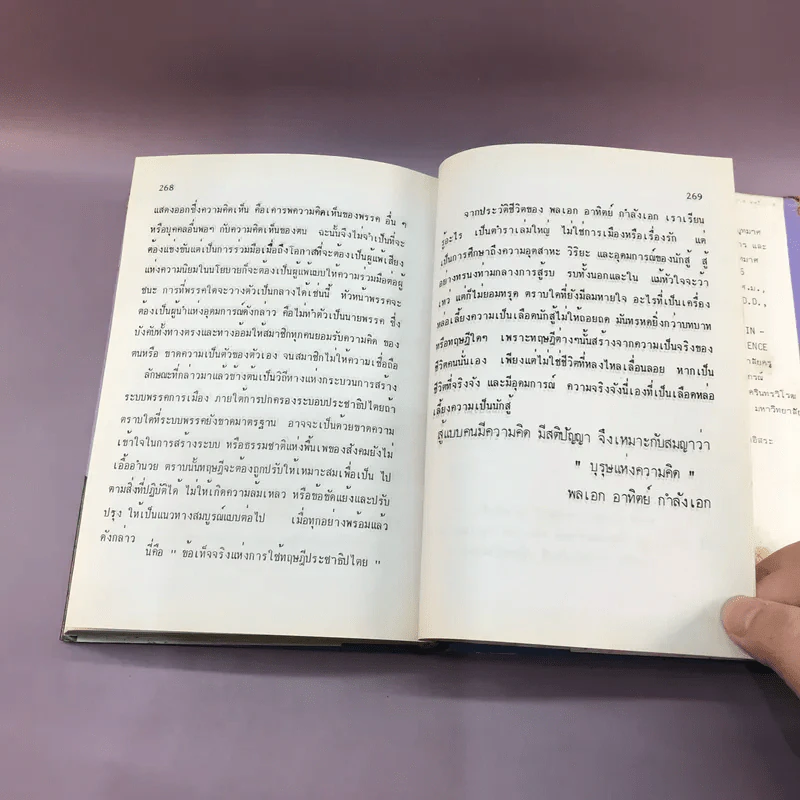 268
แสดงออกซึ่งความคิดเห็น คือเคารพความคิดเห็นของพรรค อื่น ๆ
หรือบุคคลอื่นพอๆ กับความคิดเห็นของตน ฉะนั้นจึงไม่จำเป็นที่จะ
ต้องแข่งขันแต่เป็นการร่วมมือเมื่อถึงโอกาสที่จะต้องเป็นผู้แพ้เสียง
แห่งความนิยมในนโยบายก็จะต้องเป็นผู้แพ้แบบให้ความร่วมมือต่อผู้
ชนะ การที่พรรคใดจะวางตัวเป็นกลางได้เช่นนี้ หัวหน้าพรรคจะ
ต้องเป็นผู้นำแห่งอุดมการณ์ดังกล่าว คือไม่ทำตัวเป็นนายพรรค ซึ่ง
บังคับทั้งทางตรงและทางอ้อมให้สมาชิกทุกคนยอมรับความคิด ของ
ตนหรือ ขาดความเป็นตัวของตัวเอง จนสมาชิกไม่ให้ความ เชื่อถือ
ลักษณะที่กล่าวมาแล้วข้างต้นเป็นวิถีทางแห่งกระบวนการสร้าง
ระบบพรรคการเมือง ภายใต้การปกครองระบอบประชาธิปไตยถ้า
ตราบใดที่ระบบพรรคยังขาดมาตรฐาน อาจจะเป็นด้วยขาดความ
เข้าใจในการสร้างระบบ หรือธรรมชาติแห่งพื้นเพของสังคมยังไม่
เอื้ออำนวย ตราบนั้นทฤษฎีจะต้องถูกปรับให้เหมาะสมเพื่อเป็น ไป
ตามสิ่งที่ปฏิบัติได้ ไม่ให้เกิดความล้มเหลว หรือข้อขัดแย้งและปรับ
ปรุง ให้เป็นแนวทางสมบูรณ์แบบต่อไป เมื่อทุกอย่างพร้อมแล้ว
ดังกล่าว
นี่คือ " ข้อเท็จจริงแห่งการใช้ทฤษฎีประชาธิปไตย "
269
จากประวัติชีวิตของ พลเอก อาทิตย์ กำลังเอก เราเรียน
รู้อะไร เป็นตำราเล่มใหญ่ ไม่ใช่การเมืองหรือเรื่องรัก แต่
เป็นการศึกษาถึงความอุตสาหะ วิริยะ และอุดมการณ์ของนักสู้ สู้
อย่างทรนงท่ามกลางการสู้รบ รบทั้งนอกและใน แม้หัวใจจะว้า
เหว่ แต่ก็ไม่ยอมทรุด ตราบใดที่ยังมีลมหายใจ อะไรที่เป็นเครื่อง
หล่อเลี้ยงความเป็นเลือดนักสู้ไม่ให้ถอยถด มันทรหดยิ่งกว่าบทบาท
หรือทฤษฎีใดๆ เพราะทฤษฎีต่างๆนั้นสร้างจากความเป็นจริงของ
ชีวิตคนนั่นเอง เพียงแต่ไม่ใช่ชีวิตที่หลงไหลเลื่อนลอย หากเป็น
ชีวิตที่จริงจัง และมีอุดมการณ์ ความจริงจังนี้เองที่เป็นเลือดหล่อ
เลี้ยงความเป็นนักสู้
สู้แบบคนมีความคิด มีสติปัญญา จึงเหมาะกับสมญาว่า
" บุรุษแห่งความคิด "
พลเอก อาทิตย์ กำลังเอก